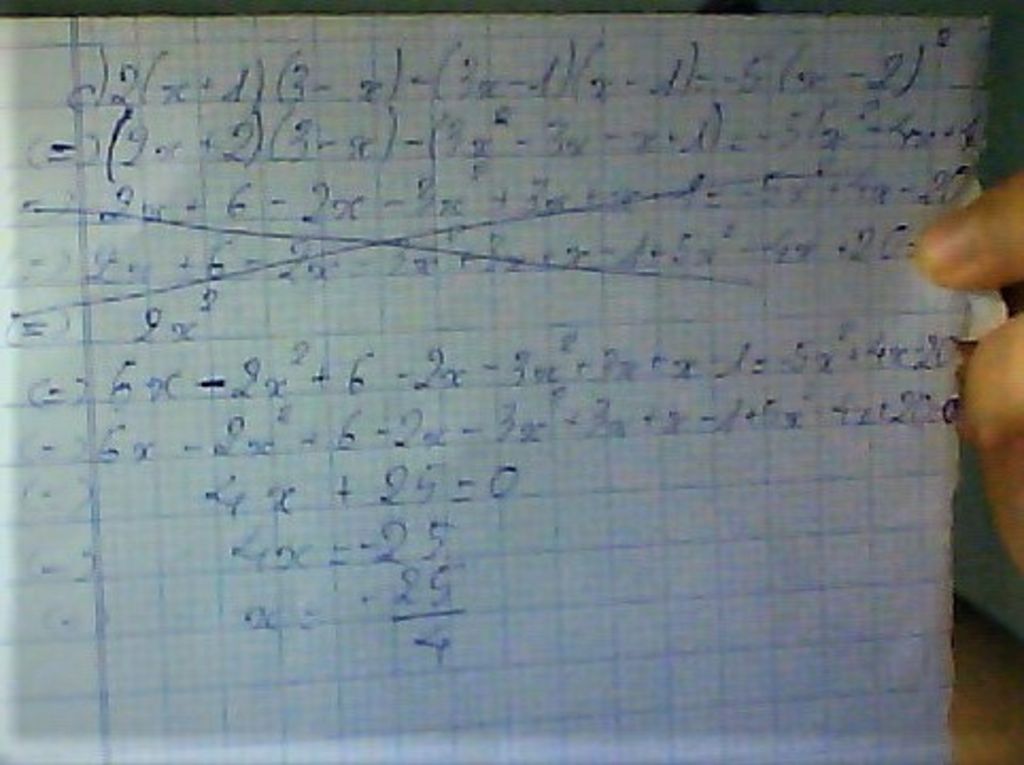 c) 2(x+1)(3-x) - (3x-1)(x-1) = -5(x-2)²
<=> (2x+2)(3-x) - (3x² - 3x - x + 1) = -5(x² - 4x + 4
2x + 6 - 2x - 3x² + 3x + x - 1 = -5x² + 4x - 20
+ 6 - 2x - 3x² + 3x + x - 1 + 5x² - 4x + 20
<=> 2x²
<=> 6x - 2x² + 6 - 2x - 3x² + 3x + x - 1 = -5x² + 4x - 20
<=> 6x - 2x² + 6 - 2x - 3x² + 3x + x - 1 + 5x² - 4x + 20 = 0
4x + 25 = 0
4x = -25
x = -25/4